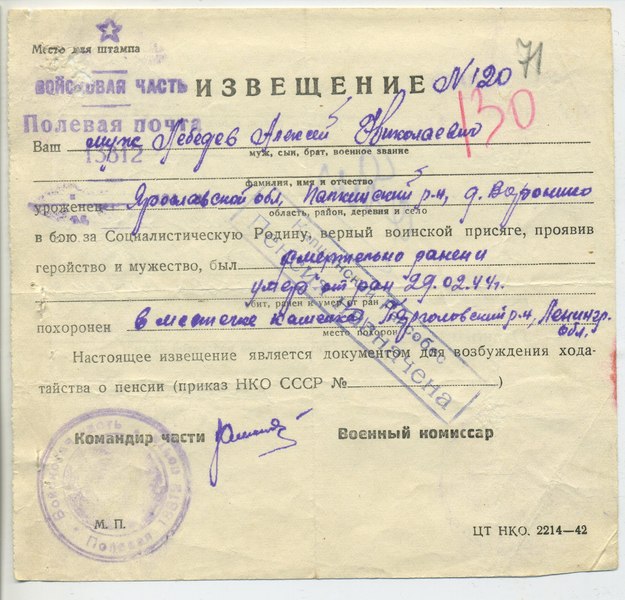 Место для штампа
71
ВОЙСКОВАЯ ЧАСТЬ
ИЗВЕЩЕНИЕ N 120
130
Полевая почта
13812
Ваш муж Лебедев Алексей Николаевич
муж, сын, брат, военное звание
фамилия, имя и отчество
уроженец Ярославской обл, р-н, д. Воронино
область, район, деревня и село
в бою за Социалистическую Родину, верный воинской присяге, проявив
геройство и мужество, был смертельно ранен и
умер от ран 29.02.44г.
убит, ранен и умер от ран
похоронен в местечке Каменка, Парголовский р-н, Ленингр.
обл.
место похорон
Пенсия назначена
Настоящее извещение является документом для возбуждения хода-
тайства о пенсии (приказ НКО СССР № )
Командир части
Военный комиссар
Войсковая часть Полевая 13812
М. П.
ЦТ НКО. 2214—42